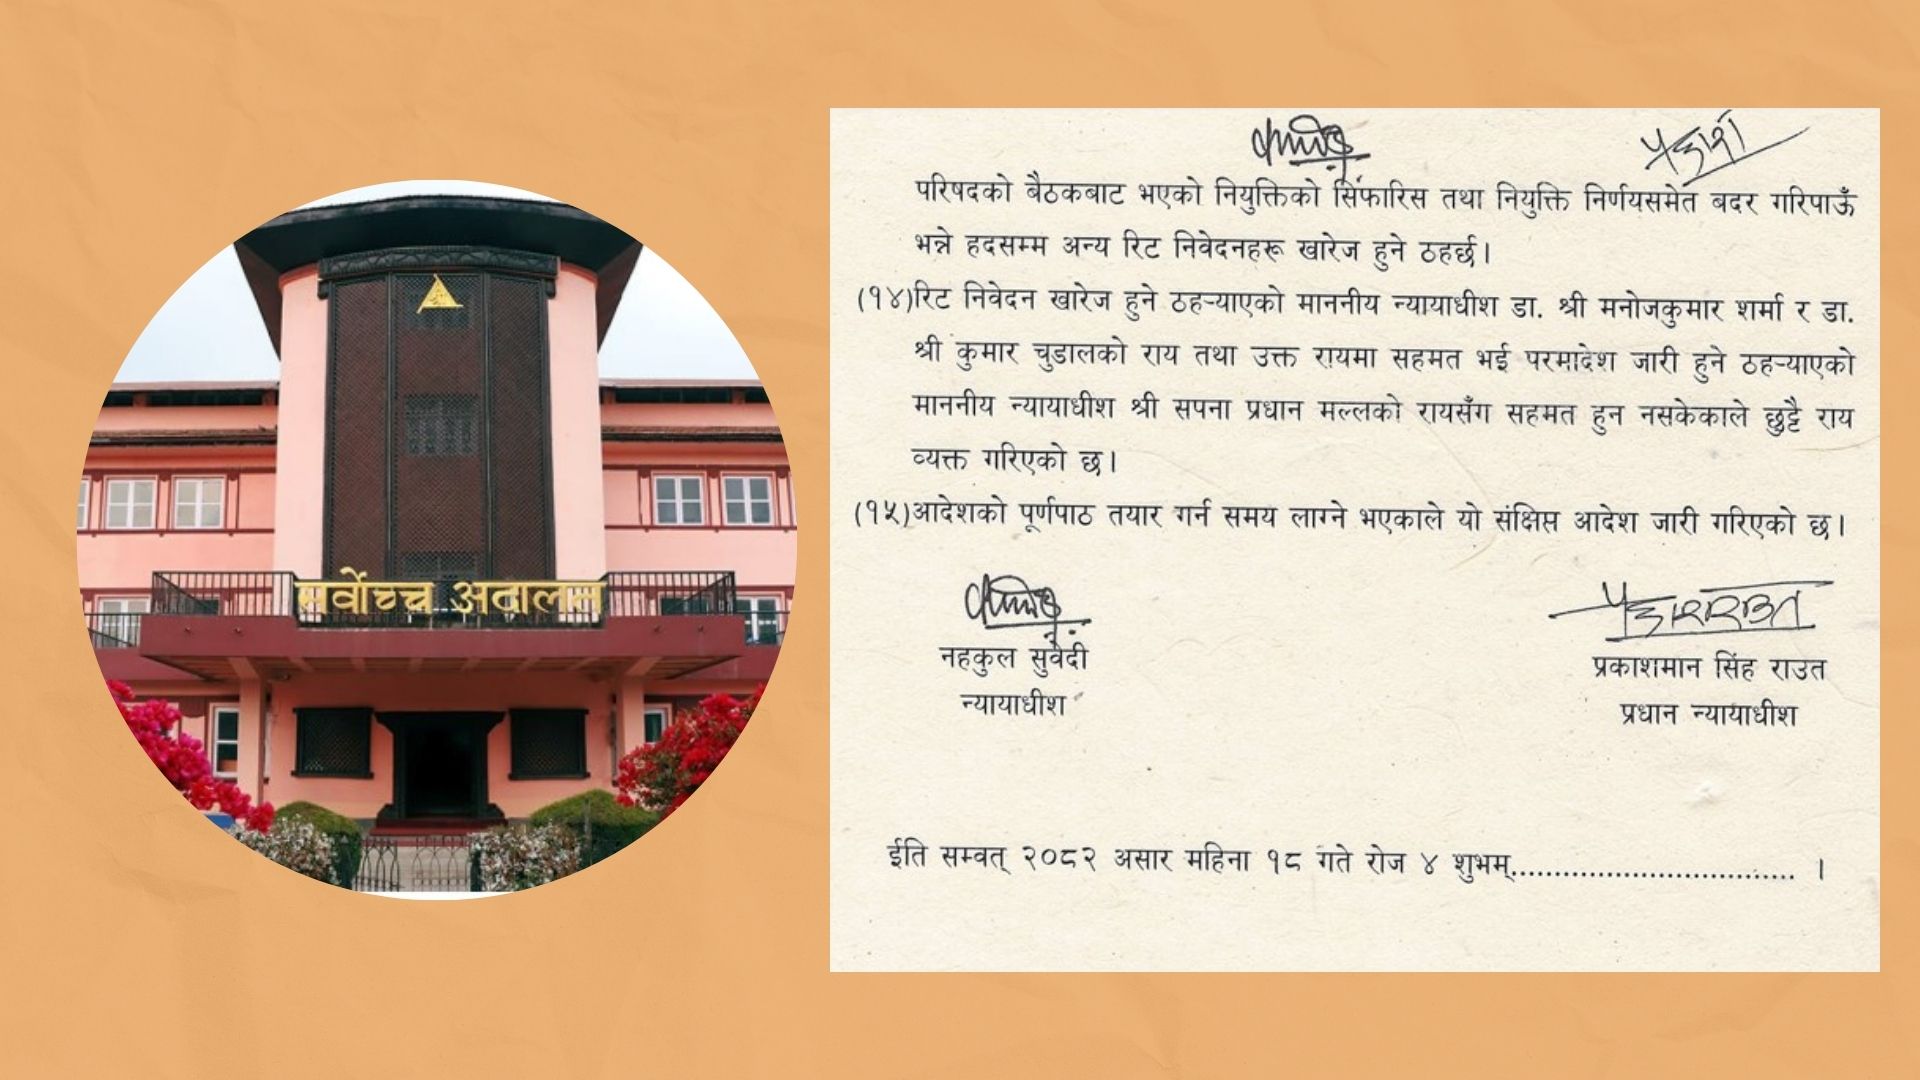 सर्वोच्च अदालत
परिषदको बैठकबाट भएको नियुक्तिको सिफारिस तथा नियुक्ति निर्णयसमेत बदर गरिपाऊँ
भन्ने हदसम्म अन्य रिट निवेदनहरू खारेज हुने ठहर्छ।
(१४)रिट निवेदन खारेज हुने ठहऱ्याएको माननीय न्यायाधीश डा. श्री मनोजकुमार शर्मा र डा.
श्री कुमार चुडालको राय तथा उक्त रायमा सहमत भई परमादेश जारी हुने ठहऱ्याएको
माननीय न्यायाधीश श्री सपना प्रधान मल्लको रायसँग सहमत हुन नसकेकाले छुट्टै राय
व्यक्त गरिएको छ।
(१५)आदेशको पूर्णपाठ तयार गर्न समय लाग्ने भएकाले यो संक्षिप्त आदेश जारी गरिएको छ।
नहकुल सुवेदी
न्यायाधीश
प्रकाशमान सिंह राउत
प्रधान न्यायाधीश
ईति सम्वत् २०८२ असार महिना १८ गते रोज ४ शुभम्.................................. ।